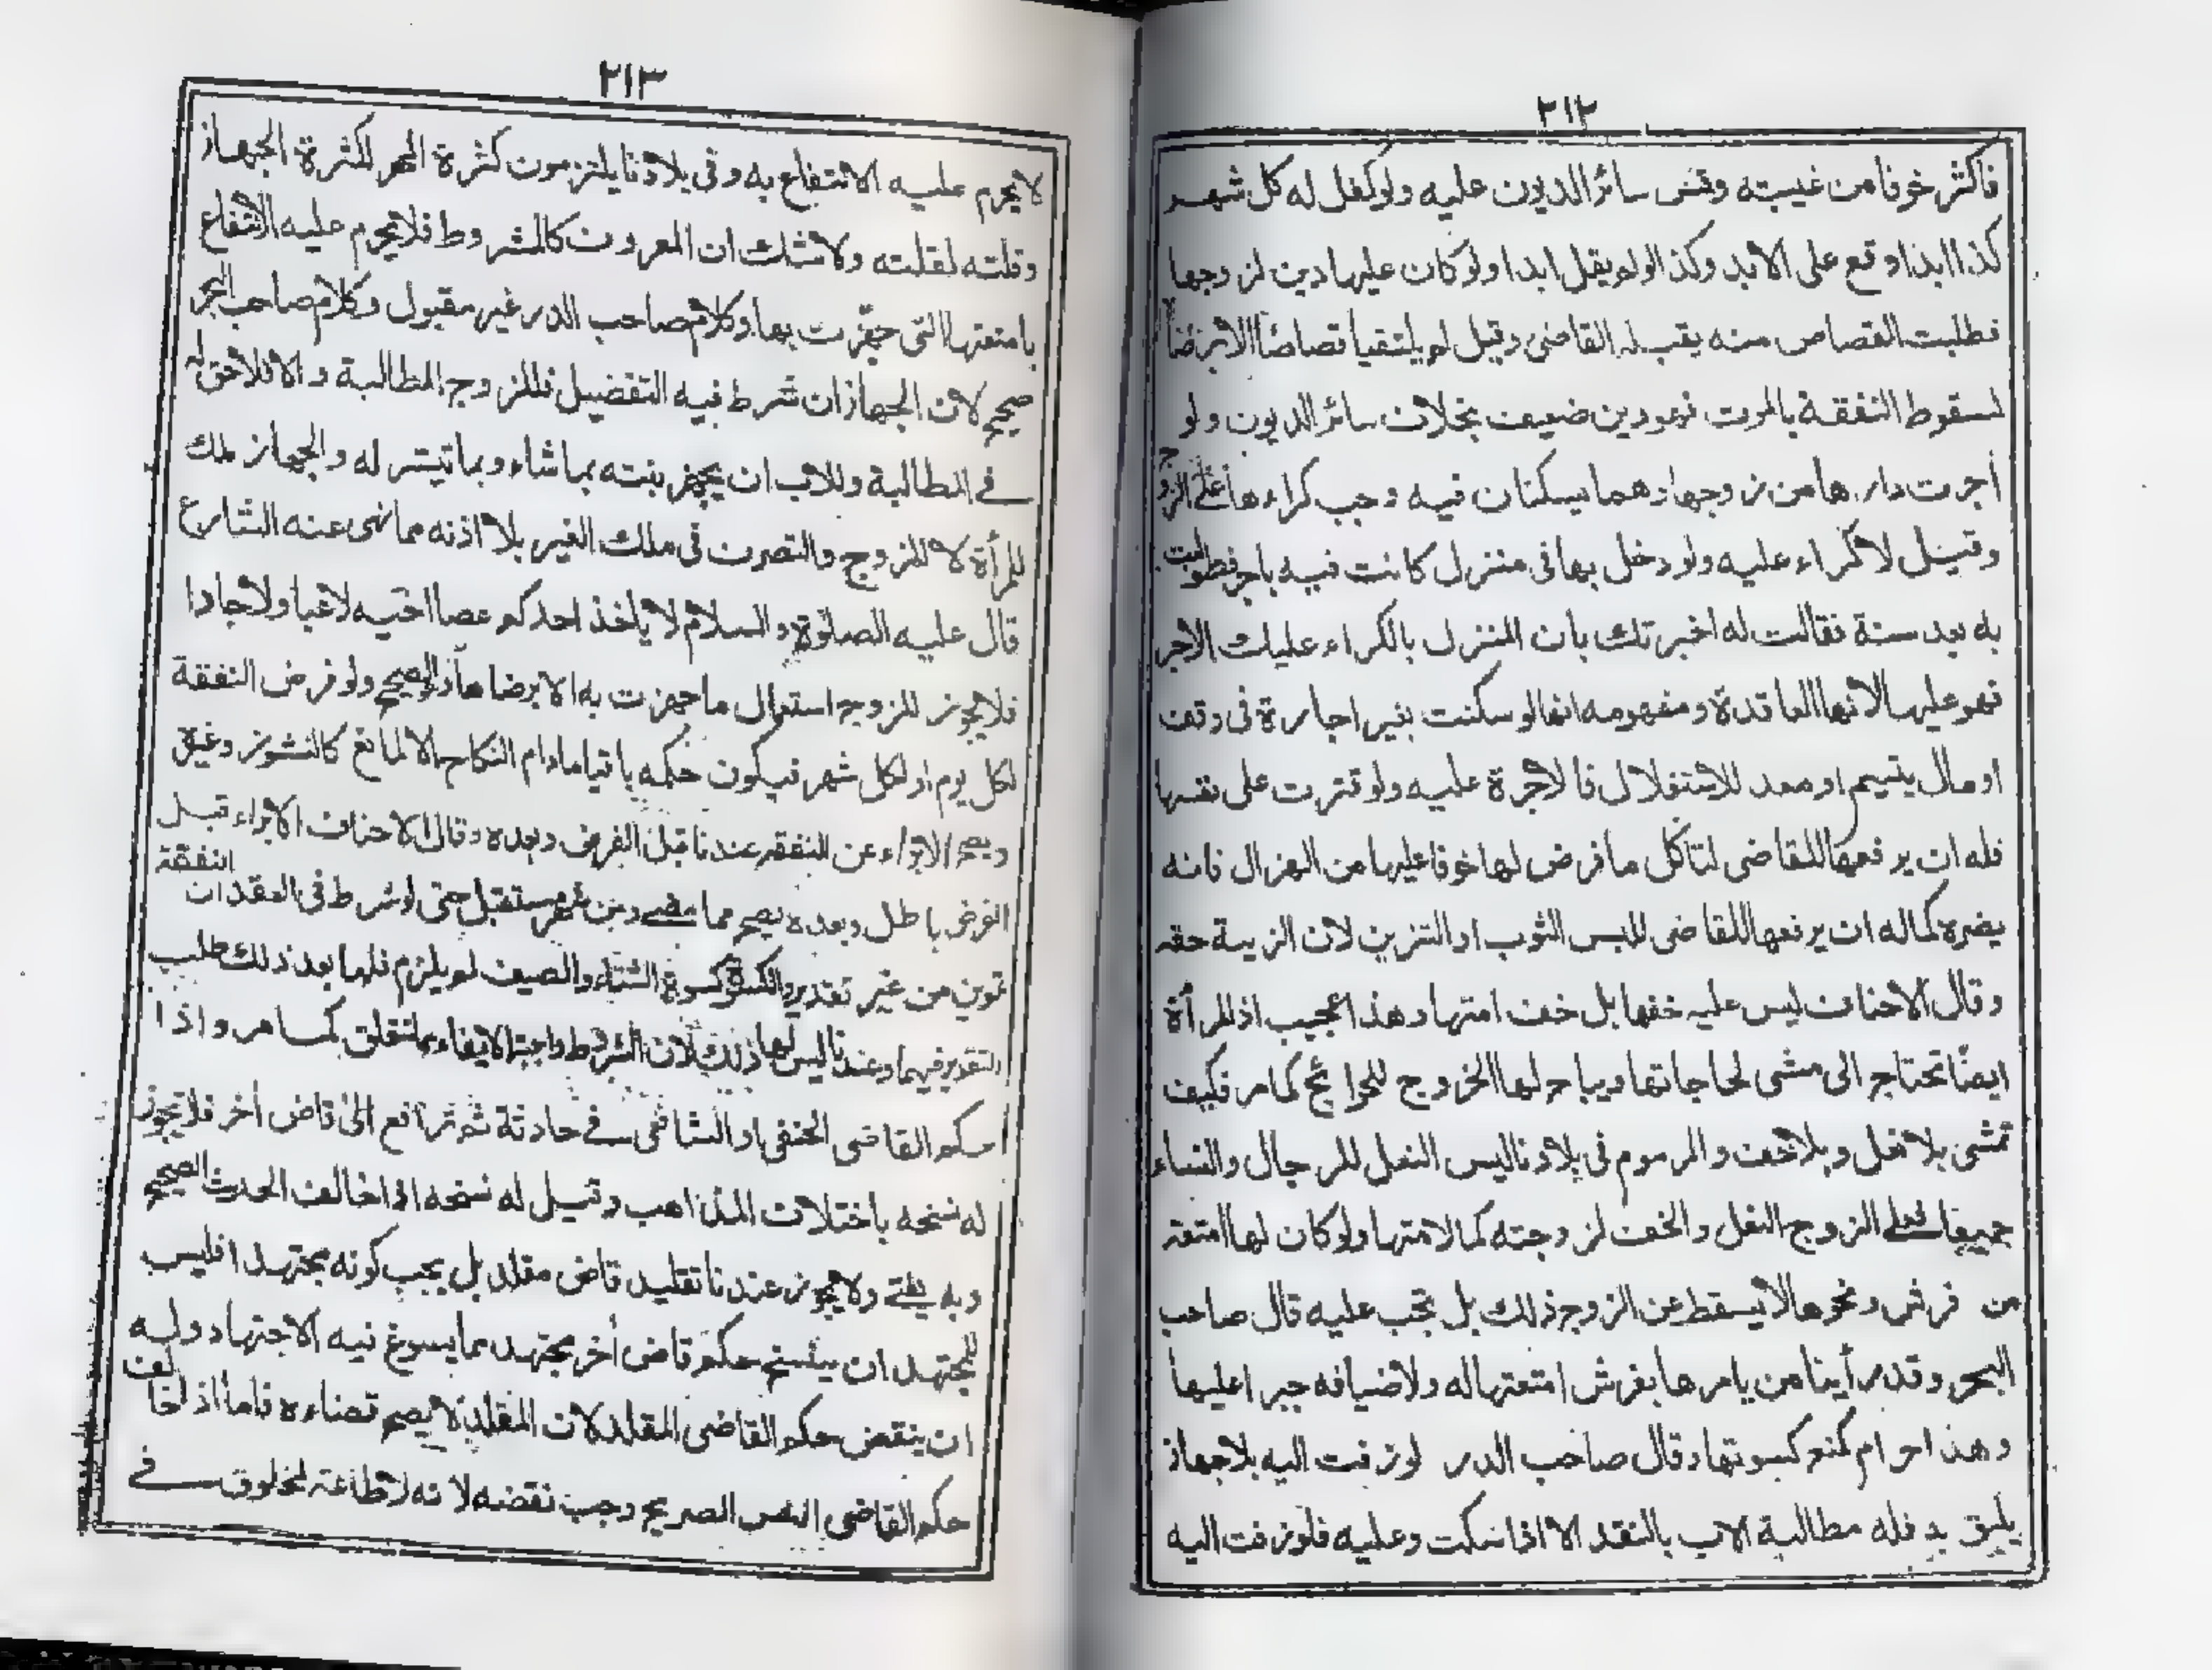 ٢١٢
فاكثر خوفا من غيبته وقس سائر الديون عليه ولو كفل له كل شهر
كذا ابدا وقع على الابد وكذا لو لم يقل ابدا ولو كان عليها دين لزوجها
فطلبت القصاص منه يقبله القاضى وقيل لم يلتقيا قصاصا الا برضاه
لسقوط النفقة بالموت فهو دين ضعيف بخلاف سائر الديون ولو
أجرت دارها من زوجها وهما يسكنان فيه وجب كراءها على الزوج
وقيل لا كراء عليه ولو دخل بها فى منزل كانت فيه باجر فطولبت
به بعد سنة فقالت له اخبرتك بان المنزل بالكراء عليك الاجر
فهو عليها لانها العاقدة ومفهومه انها لو سكنت بغير اجارة فى وقف
او مال يتيم او معد للاستغلال فالاجرة عليه ولو قترت على نفسها
فله ان يرفعها للقاضى لتاكل ما فرض لها خوفا عليها من الهزال فانه
يضره كما له ان يرفعها للقاضى للبس الثوب او التزين لان الزينة حقه
وقال الاحناف ليس عليه خفها بل خف امتها وهذا عجيب اذ المرأة
ايضا تحتاج الى مشى لحاجاتها ويباح لها الخروج للحوائج كما مر فكيف
تمشى بلا نعل وبلا خف والمرسوم فى بلادنا لبس النعل للرجال والنساء
جميعا فعلى الزوج النعل والخف لزوجته كما لامتها ولو كان لها امتعة
من فرش ونحوها لا يسقط عن الزوج ذلك بل تجب عليه قال صاحب
البحر وقد رأينا من يامرها بفرش امتعتها له ولاضيافه جبرا عليها
وهذا حرام كمنع كسوتها وقال صاحب الدر لو زفت اليه بلا جهاز
يليق به فله مطالبة الاب بالنقد الا اذا سكت وعليه فلو زفت اليه
٢١٣
لا يحرم عليه الانتفاع به وفى بلادنا يلتزمون كثرة المهر لكثرة الجهاز
وقلته لقلته ولا شك ان المعروف كالمشروط فلا يحرم عليه الانتفاع
بامتعتها التى جهزت بها وكلام صاحب الدر غير مقبول وكلام صاحب البحر
صحيح لان الجهاز ان شرط فيه التفضيل فللزوج المطالبة والا فلا حق له
فى المطالبة وللاب ان يجهز بنته بما شاء وبما تيسر له والجهاز ملك
للمرأة لا للزوج والتصرف فى ملك الغير بلا اذنه مما نهى عنه الشارع
قال عليه الصلوة والسلام لا ياخذ احدكم عصا اخيه لاعبا ولا جادا
فلا يجوز للزوج استعمال ما جهزت به الا برضاها والصحيح ولو فرض النفقة
لكل يوم او لكل شهر فيكون حكمه باقيا ما دام النكاح الا لمانع كالنشوز وغيره
ويصح الابراء عن النفقة عندنا قبل الفرض وبعده وقال الاحناف الابراء قبل
الفرض باطل وبعده يصح مما مضى ومن شهر مستقبل حتى لو شرط فى العقد ان النفقة
تموين من غير تقدير والكسوة كسوة الشتاء والصيف لم يلزم فلها بعد ذلك طلب
التقدير فيهما وعندنا ليس لها ذلك لان الشروط واجبة الايفاء كما مر واذا
حكم القاضى الحنفى او الشافعى فى حادثة ثم ترافع الى قاض أخر فلا يجوز
له نسخه باختلاف المذاهب وقيل له نسخه اذا خالف الحديث الصحيح
وبه يفتى ولا يجوز عندنا تقليد قاض مقلد بل يجب كونه مجتهدا فليس
للمجتهد ان ينسخ حكم قاض أخر مجتهد مما يسوغ فيه الاجتهاد وله
ان ينقض حكم القاضى المقلد لان المقلد لا يصح قضاءه فاما اذا خالف
حكم القاضى النص الصريح وجب نقضه لانه لا طاعة لمخلوق فى